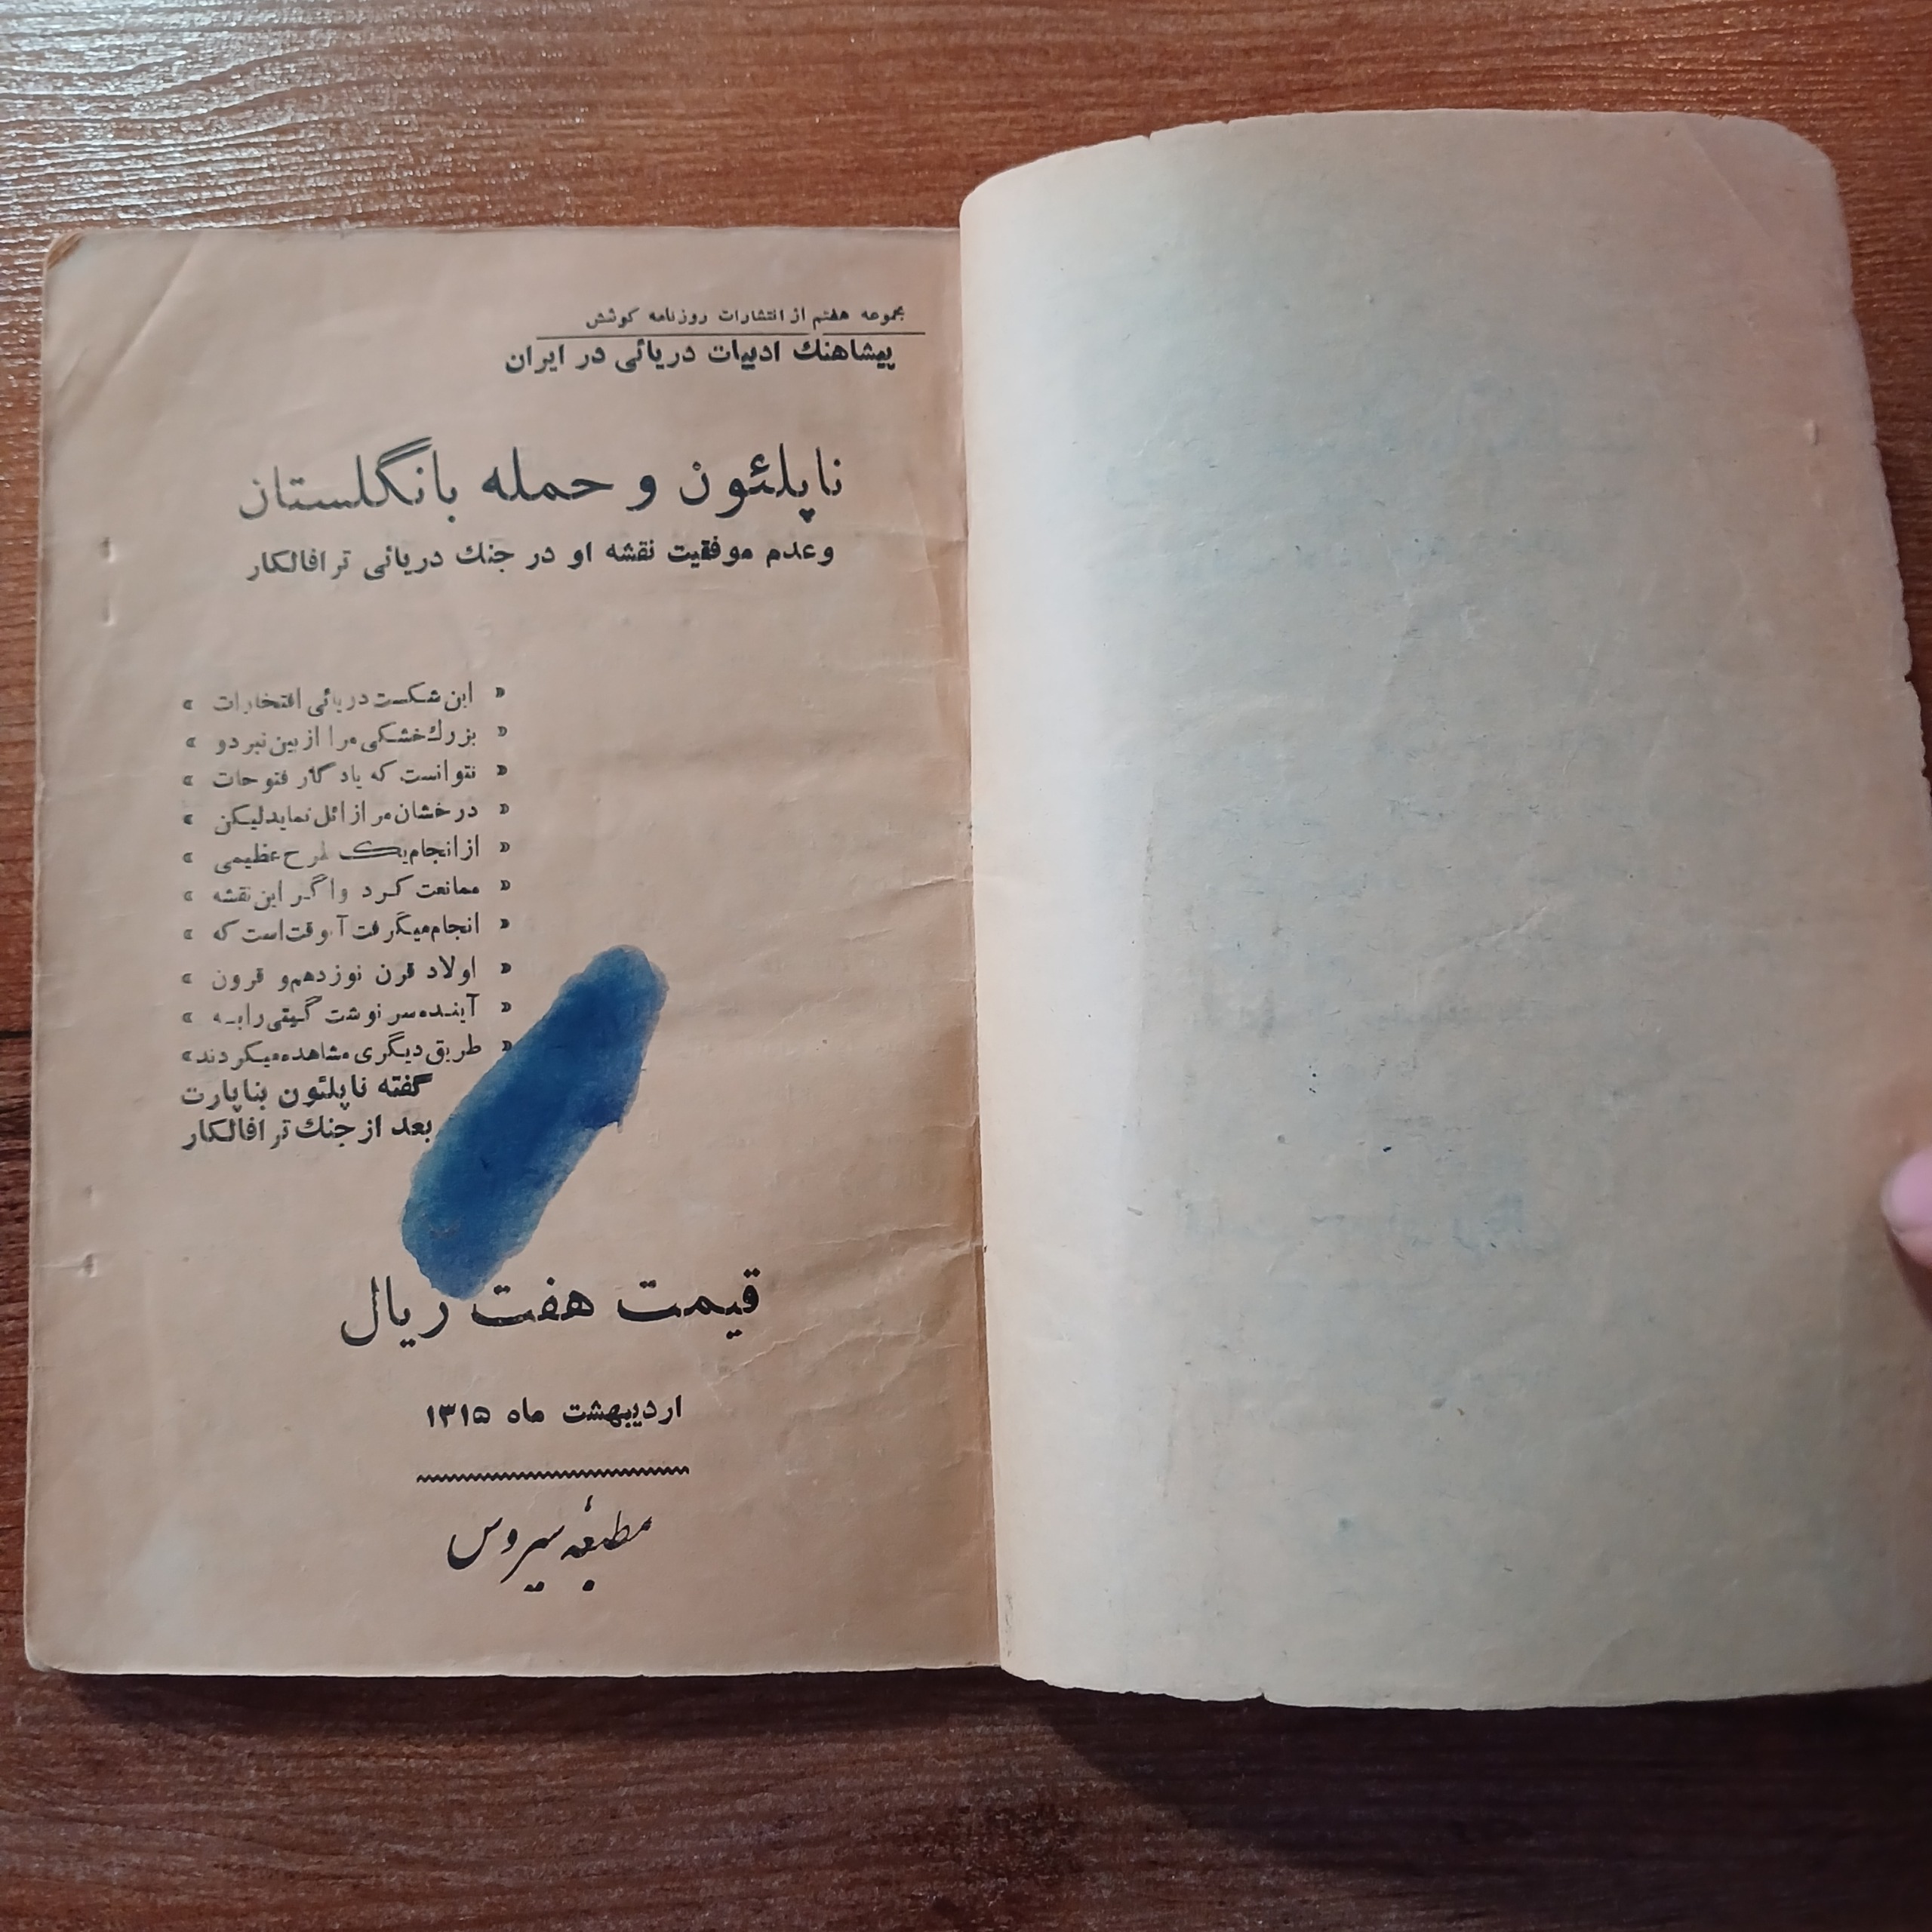 مجموعه هفتم از انتشارات روزنامه کوشش
پیشاهنك ادبیات دریائی در ایران
ناپلئون و حمله بانگلستان
وعدم موفقیت نقشه او در جنك دریائی ترافالکار
« این شکست دریائی افتخارات »
« بزرك خشکی مرا از بین نبرد و »
« نتوانست که یادگار فتوحات »
« درخشان مرا زائل نماید لیکن »
« از انجام یک طرح عظیمی »
« ممانعت کرد واگر این نقشه »
« انجام میگرفت آنوقت است که »
« اولاد قرن نوزدهم و قرون »
« آینده سرنوشت گیتی را به »
« طریق دیگری مشاهده میکردند »
گفته ناپلئون بناپارت
بعد از جنك ترافالکار
قیمت هفت ریال
اردیبهشت ماه ۱۳۱۵
مطبعهٔ سیروس